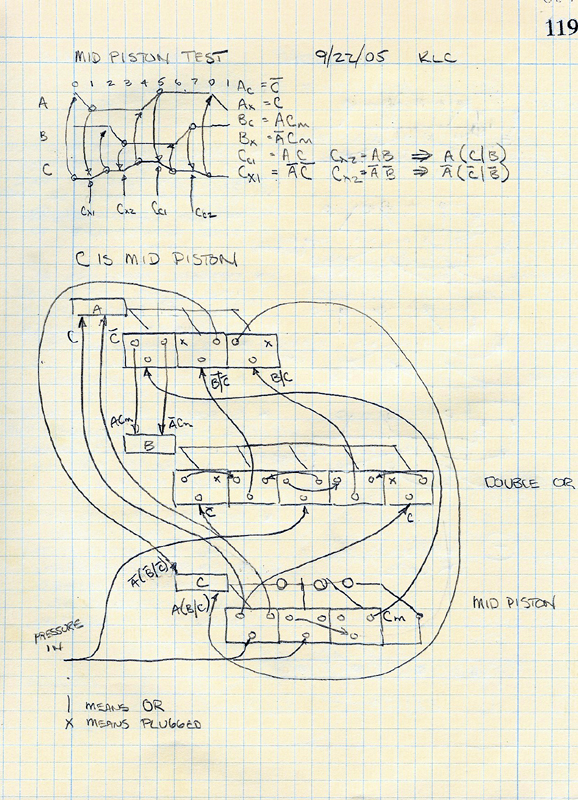 119
MID PISTON TEST 9/22/05 RLC
0 1 2 3 4 5 6 7 0 1
A
B
C
Ac = C̅
Ax = C
Bc = ACm
Bx = A̅Cm
Cc1 = AC Cc2 = AB ⇒ A(C|B)
Cx1 = A̅C̅ Cx2 = A̅B̅ ⇒ A̅(C̅|B̅)
Cx1 Cx2 Cc1 Cc2
C IS MID PISTON
A
C C̅ x x
B̅|C̅ B|C
ACm A̅Cm
B
x x
DOUBLE OR
C̅ C
A̅(B̅|C̅) C
A(B|C)
MID PISTON
Cm
PRESSURE
IN
| MEANS OR
x MEANS PLUGGED